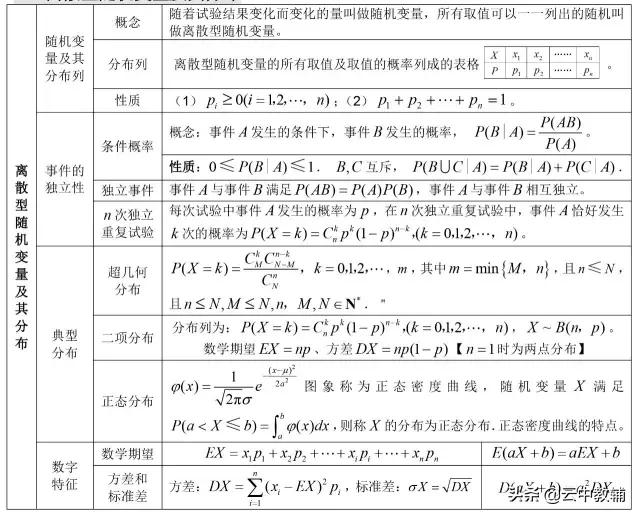 离散型随机变量及其分布
随机变量及其分布列
概念
随着试验结果变化而变化的量叫做随机变量，所有取值可以一一列出的随机叫
做离散型随机变量。
分布列
离散型随机变量的所有取值及取值的概率列成的表格
X x₁ x₂ …… xₙ
P p₁ p₂ …… pₙ
。
性质
（1） pᵢ ≥ 0(i = 1,2,⋯, n)；（2） p₁ + p₂ + ⋯ + pₙ = 1 。
事件的独立性
条件概率
概念：事件 A 发生的条件下，事件 B 发生的概率， P(B | A) = P(AB)/P(A) 。
性质：0 ≤ P(B | A) ≤ 1． B,C 互斥， P(B∪C | A) = P(B | A) + P(C | A)．
独立事件
事件 A 与事件 B 满足 P(AB) = P(A)P(B)，事件 A 与事件 B 相互独立。
n 次独立
重复试验
每次试验中事件 A 发生的概率为 p，在 n 次独立重复试验中，事件 A 恰好发生
k 次的概率为 P(X = k) = Cₙᵏ pᵏ (1 − p)ⁿ⁻ᵏ,(k = 0,1,2,⋯, n)。
典型分布
超几何
分布
P(X = k) = C_M^k C_{N−M}^{n−k} / C_N^n， k = 0,1,2,⋯, m，其中 m = min{M, n}，且 n ≤ N，
且 n ≤ N, M ≤ N, n， M, N ∈ N*． "
二项分布
分布列为：P(X = k) = Cₙᵏ pᵏ (1 − p)ⁿ⁻ᵏ,(k = 0,1,2,⋯, n)， X ~ B(n，p)。
数学期望 EX = np、方差 DX = np(1 − p)【 n = 1 时为两点分布】
正态分布
φ(x) = 1/(√2πσ) e^{−(x−μ)²/2a²} 图象称为正态密度曲线，随机变量 X 满足
P(a < X ≤ b) = ∫ₐᵇ φ(x)dx，则称 X 的分布为正态分布．正态密度曲线的特点。
数字特征
数学期望
EX = x₁p₁ + x₂p₂ + ⋯ + xᵢpᵢ + ⋯ + xₙpₙ
E(aX + b) = aEX + b
方差和
标准差
方差：DX = ∑_{i=1}^{n} (xᵢ − EX)² pᵢ，标准差：σX = √DX
D(aX + b) = a²DX
头条@云中教辅